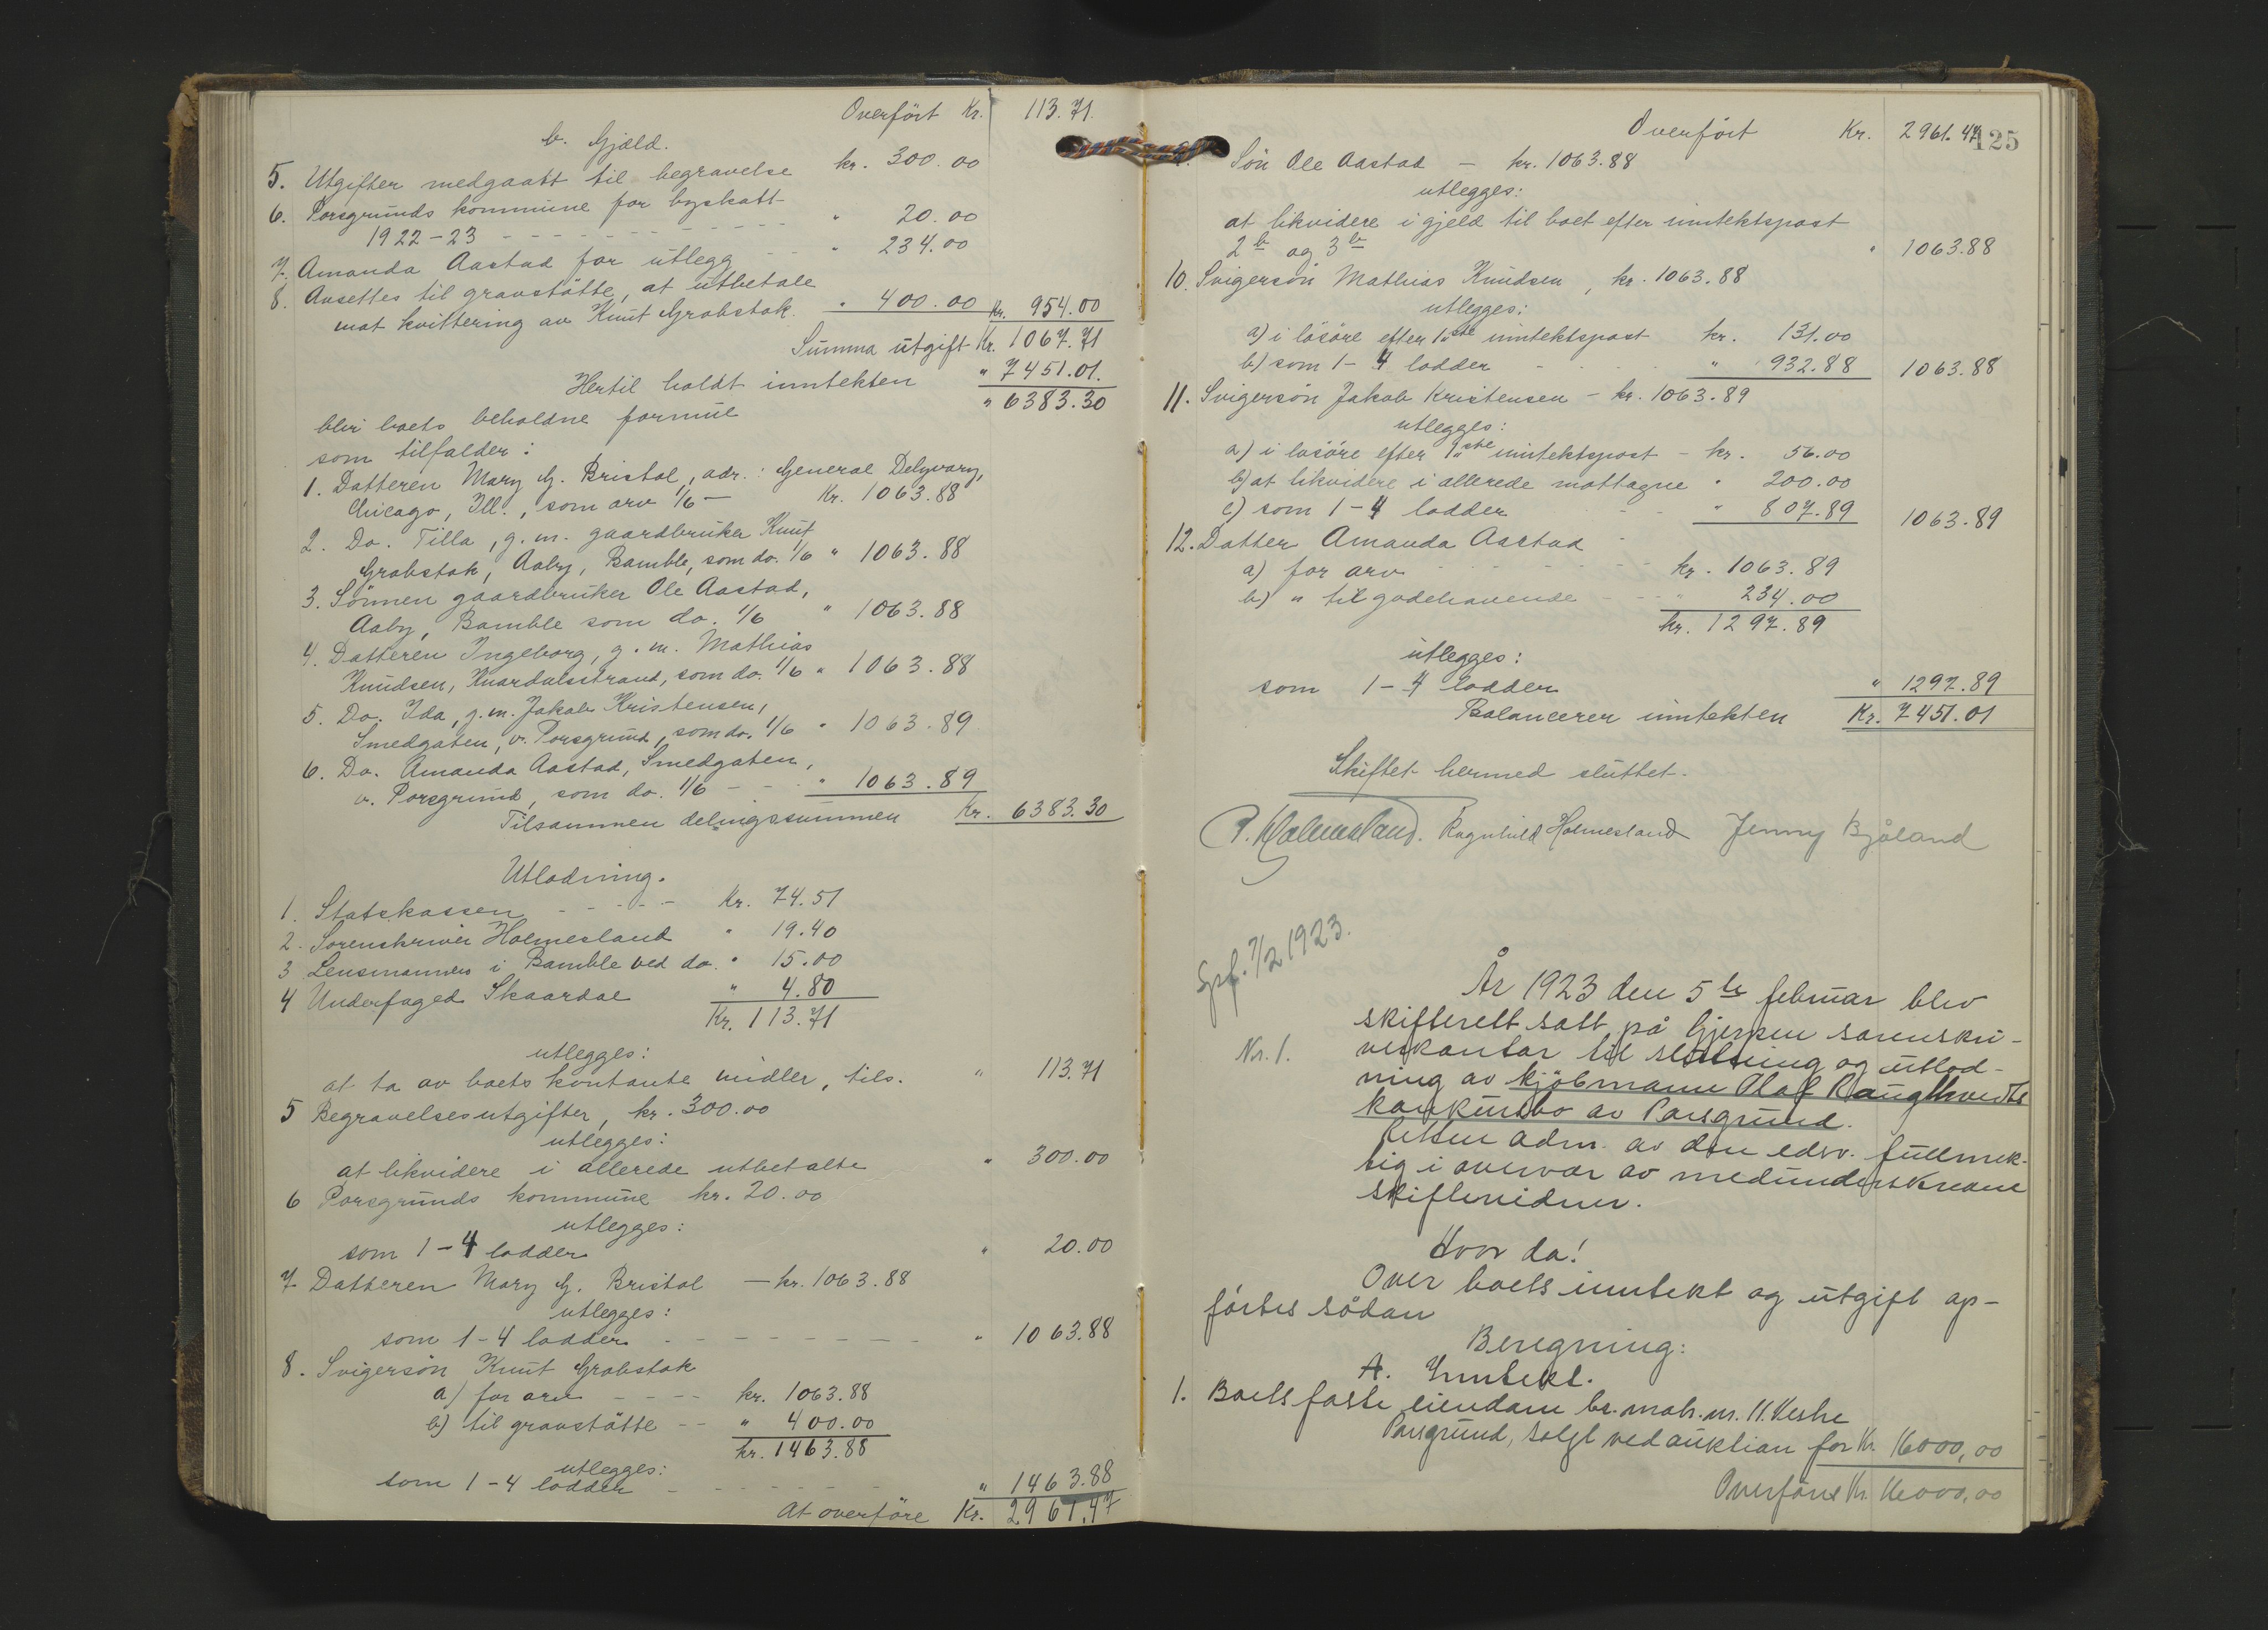 Overført Kr. 113.71.
b. Gjæld.
5. Utgifter medgaatt til begravelse kr. 300.00
6. Porsgrunds kommune for byskatt
1922-23 - - - " 20.00
7. Amanda Aastad for utlegg - - " 234.00
8. Avsettes til gravstøtte, at utbetale
mot kvittering av Knut Grobstok. " 400.00 Kr. 954.00
Summa utgift Kr. 1067.71
Hertil holdt inntekten " 7451.01.
blir boets beholdne formue " 6383.30
som tilfalder:
1. Datteren Mary G. Bristol, adr.: General Delyvary,
Chicago, Ill., som arv 1/6 - Kr. 1063.88
2. Do. Tilla, g.m. gaardbruker Knut
Grobstok, Aaby, Bamble, som do. 1/6 " 1063.88
3. Sønnen gaardbruker Ole Aastad,
Aaby, Bamble som do. 1/6 " 1063.88
4. Datteren Ingeborg, g.m. Mathias
Knudsen, Knardalsstrand, som do. 1/6 " 1063.88
5. Do. Ida, g.m. Jakob Kristensen,
Smedgaten, v. Porsgrund, som do. 1/6 " 1063.89
6. Do. Amanda Aastad, Smedgaten,
v. Porsgrund, som do. 1/6 - - " 1063.89
Tilsammen delingssummen Kr. 6383.30
Utlodning.
1. Statskassen - - - - Kr. 74.51
2. Sorenskriver Holmesland " 19.40
3 Lensmannen i Bamble ved do. " 15.00
4 Underfoged Skaardal " 4.80
Kr. 113.71
utlegges:
at ta av boets kontante midler, tils. " 113.71
5 Begravelsesutgifter, kr. 300.00
utlegges:
at likvidere i allerede utbetalte " 300.00
6 Porsgrunds kommune kr. 20.00
utlegges:
som 1-4 lodder " 20.00
7. Datteren Mary G. Bristol - kr. 1063.88
utlegges:
som 1-4 lodder - - - - - - - " 1063.88
8. Svigersøn Knut Grobstok
a) for arv - - - - kr. 1063.88
b) til gravstøtte - - " 400.00
kr. 1463.88
utlegges:
som 1-4 lodder - - - - - " 1463.88
At overføre Kr. 2961.47
125
Overført Kr. 2961.47
Søn Ole Aastad - kr. 1063.88
utlegges:
at likvidere i gjeld til boet efter inntektspost
2 b og 3 b " 1063.88
10. Svigersøn Mathias Knudsen, kr. 1063.88
utlegges:
a) i løsøre efter 1ste inntektspost kr. 131.00
b) som 1-4 lodder - - " 932.88 1063.88
11. Svigersøn Jakob Kristensen - kr. 1063.89
utlegges:
a) i løsøre efter 1ste inntektspost - kr. 56.00
b) at likvidere i allerede mottagne " 200.00
c) som 1-4 lodder - - " 807.89 1063.89
12. Datter Amanda Aastad
a) for arv - - - - kr. 1063.89
b) " tilgodehavende - - " 234.00
kr. 1297.89
utlegges:
som 1-4 lodder " 1297.89
Balancerer inntekten Kr. 7451.01
Skiftet hermed sluttet.
P. Holmesland. Ragnhild Holmesland Jenny Bjåland
7/2 1923.
År 1923 den 5te februar blev
skifterett satt på Gjerpen sorenskri-
Nr. 1. verkontor til slutning og utlod-
ning av kjøbmann Olaf Raugthvedts
konkursbo av Porsgrund.
Retten adm. av den edsv. fullmek-
tig i overvær av medunderskrevne
skiftevidner.
Hvor da!
Over boets inntekt og utgift op-
førtes sådan
Beregning:
A. Inntekt.
1. Boets faste eiendom br. matr. nr. 11. Vestre
Porsgrund, solgt ved auktion for Kr. 16000,00
Overføres Kr. 16000,00